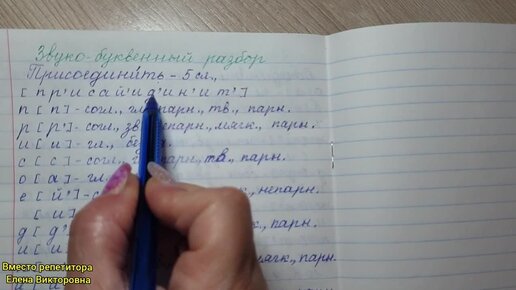 Звуко-буквенный разбор
Присоединить - 5 сл.,
[ п р' и с а й' и д' и н' и т' ]
п [ п ] - согл., гл., парн., тв., парн.
р [ р' ] - согл., зв., непарн., мягк., парн.
и [ и ] - гл.,
с [ с ] - согл., парн., тв., парн.
о [ а ] - гл.,
е [ й' ] - непарн.
[ и ]
д [ д' парн.
и [ и
мягк., парн.
Вместо репетитора
Елена Викторовна